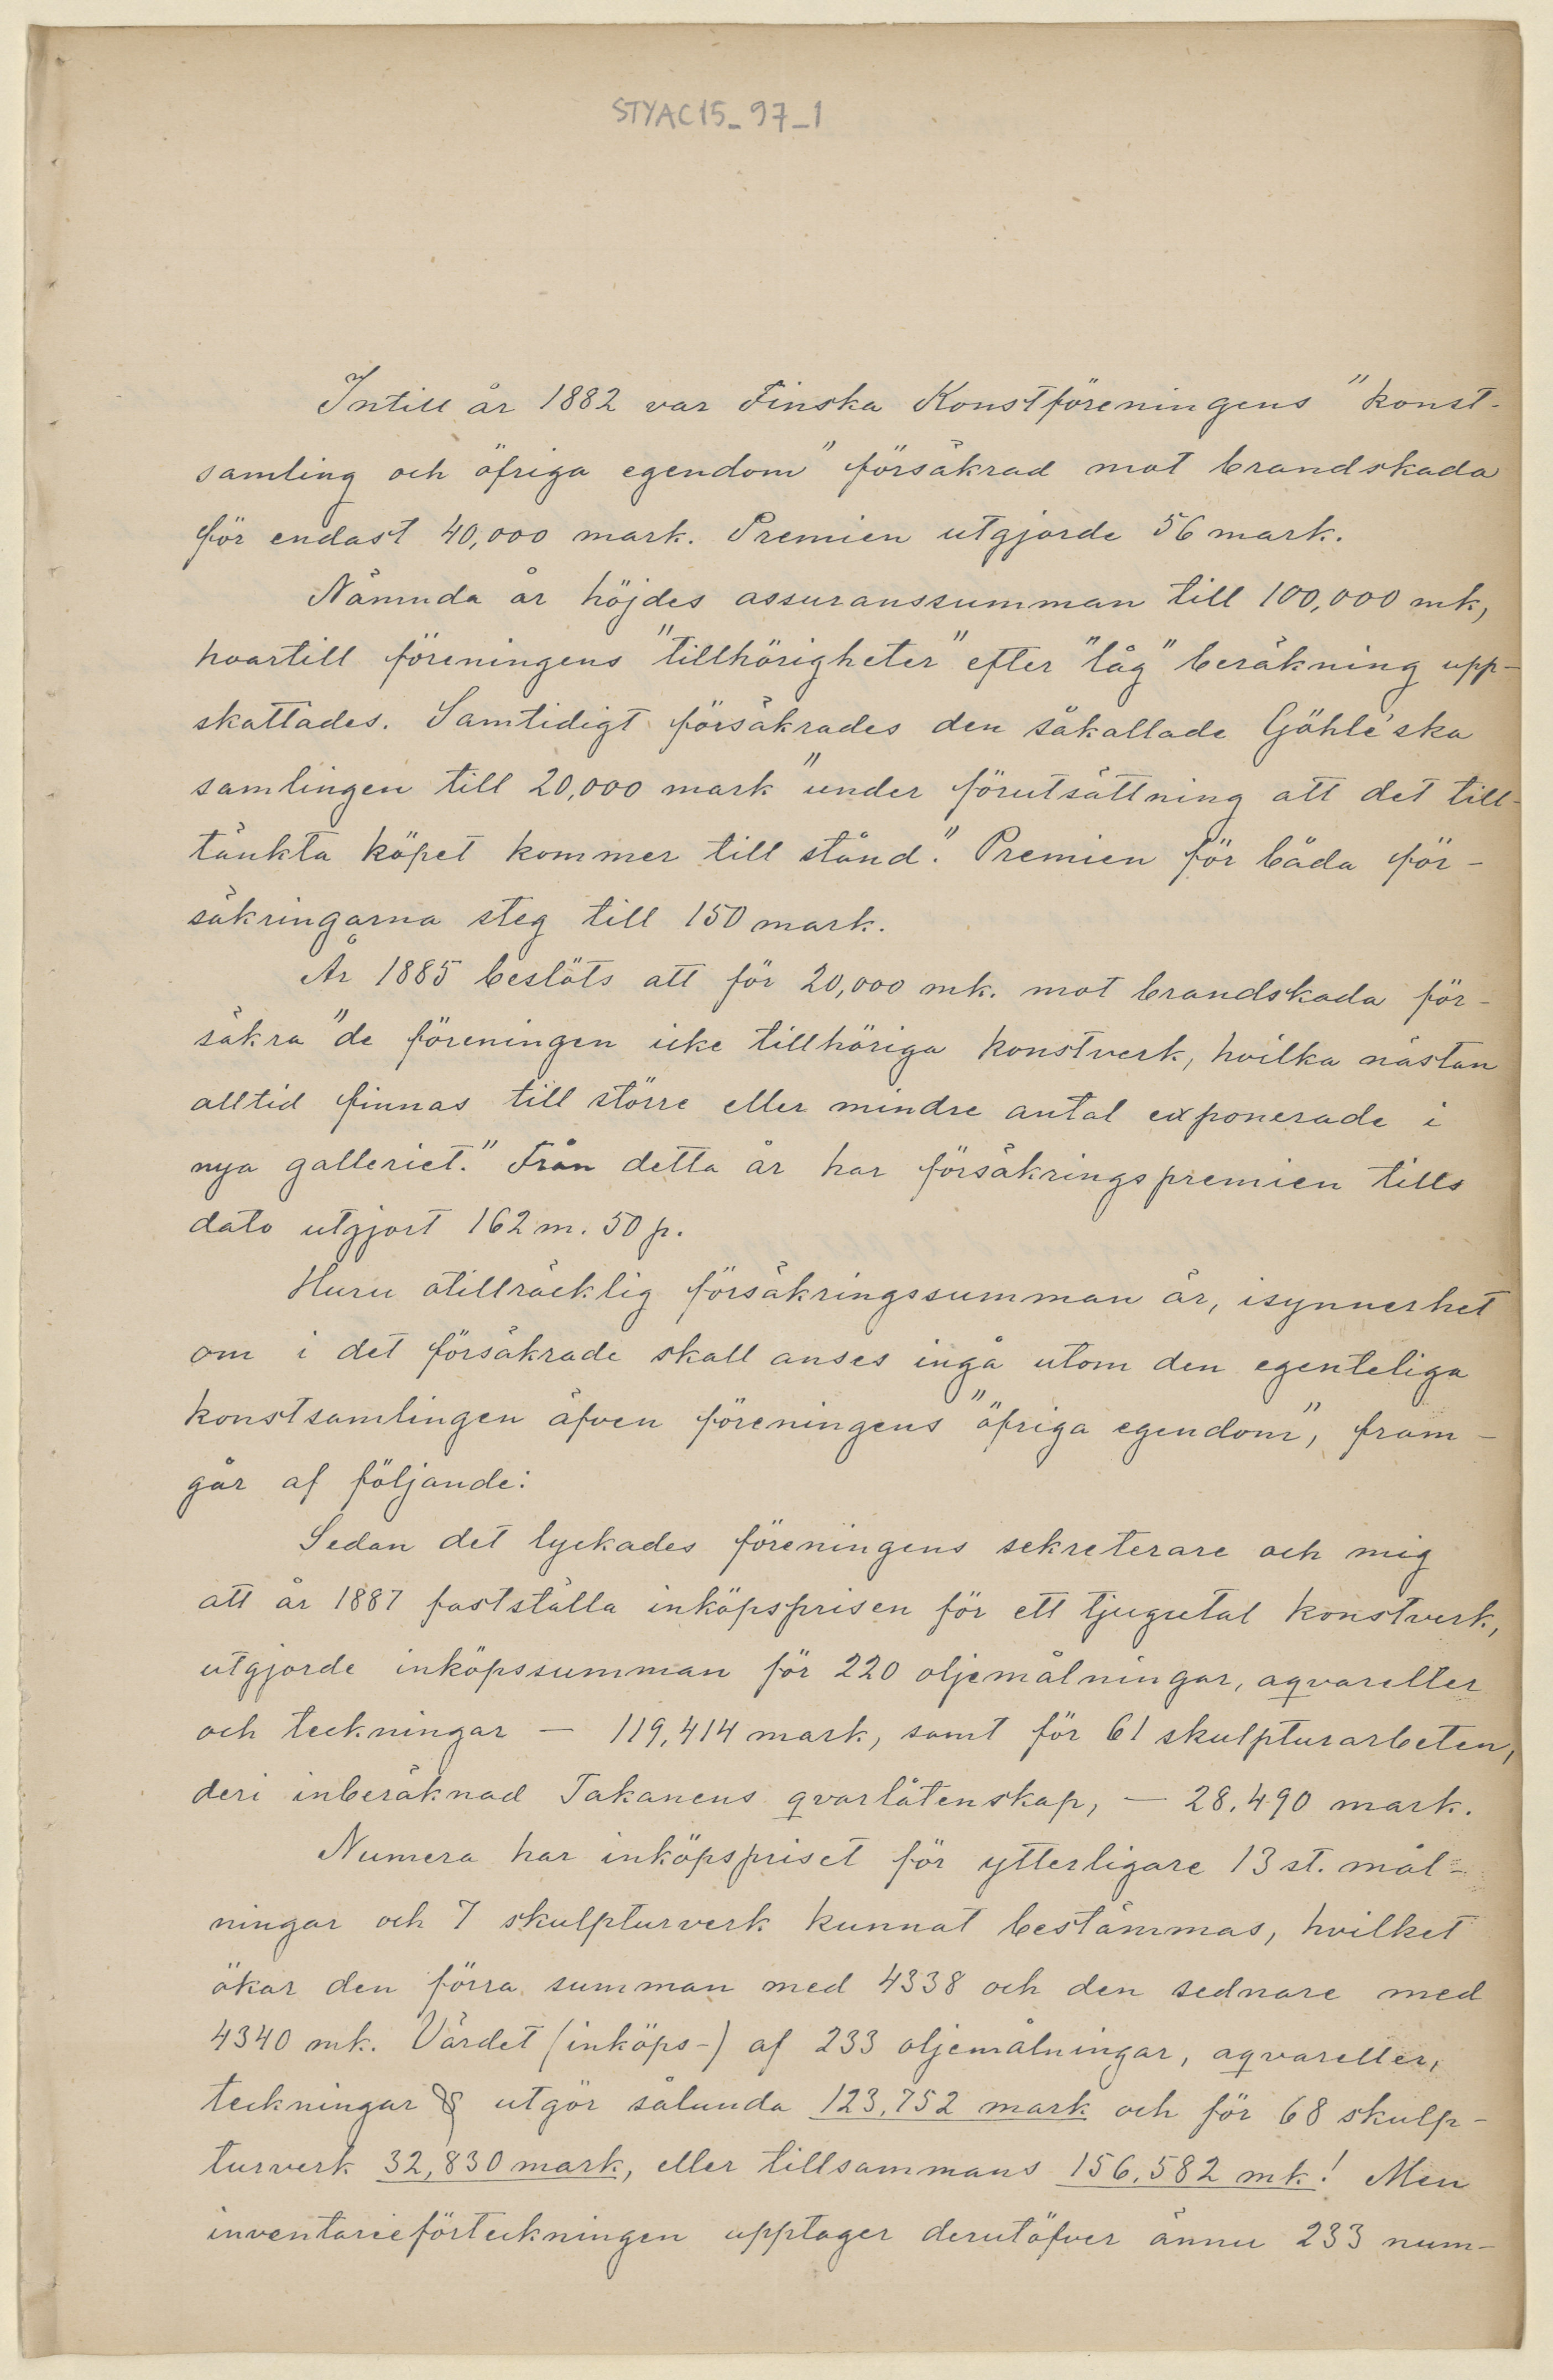 STYAC15_97_1
Intill år 1882 var Finska Konstföreningens "konst-
samling och öfriga egendom" försäkrad mot brandskada
för endast 40,000 mark. Premien utgjorde 56 mark.
Nämnda år höjdes assuranssumman till 100,000 mk,
hvartill föreningens "tillhörigheter" efter "låg" beräkning upp-
skattades. Samtidigt försäkrades den såkallade Göhle'ska
samlingen till 20,000 mark "under förutsättning att det till-
tänkta köpet kommer till stånd." Premien för båda för-
säkringarna steg till 150 mark.
År 1885 beslöts att för 20,000 mk. mot brandskada för-
säkra "de föreningen icke tillhöriga konstverk, hvilka nästan
alltid finnas till större eller mindre antal exponerade i
nya galleriet." Från detta år har försäkringspremien tills
dato utgjort 162 m. 50 p.
Huru otillräcklig försäkringssumman är, isynnerhet
om i det försäkrade skall anses ingå utom den egenteliga
konstsamlingen äfven föreningens "öfriga egendom", fram-
går af följande:
Sedan det lyckades föreningens sekreterare och mig
att år 1887 fastställa inköpsprisen för ett tjugutal konstverk,
utgjorde inköpssumman för 220 oljemålningar, aqvareller
och teckningar — 119,414 mark, samt för 61 skulpturarbeten,
deri inberäknad Takanens qvarlåtenskap, — 28,490 mark.
Numera har inköpspriset för ytterligare 13 st. mål-
ningar och 7 skulpturverk kunnat bestämmas, hvilket
ökar den förra summan med 4338 och den sednare med
4340 mk. Värdet (inköps-) af 233 oljemålningar, aqvareller,
teckningar utgör sålunda 123,752 mark och för 68 skulp-
turverk 32,830 mark, eller tillsammans 156,582 mk! Men
inventarieförteckningen upptager derutöfver ännu 233 num-